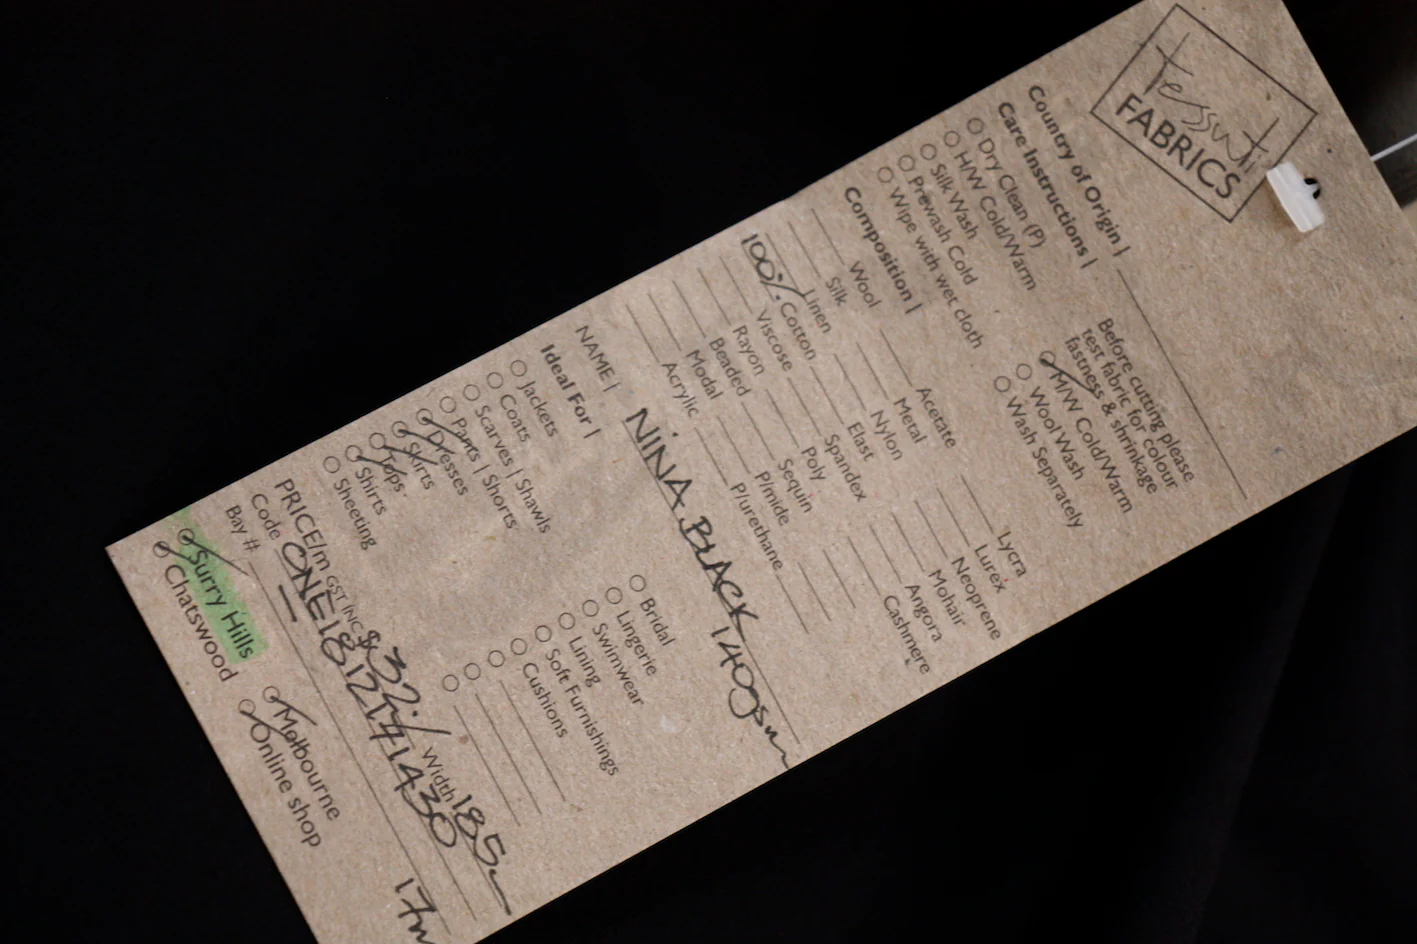 tessuti
FABRICS
Country of Origin |
Care Instructions |
Dry Clean (P)
H/W Cold/Warm
Silk Wash
Prewash Cold
Wipe with wet cloth
Before cutting please
test fabric for colour
fastness & shrinkage
M/W Cold/Warm
Wool Wash
Wash Separately
Composition |
Wool
Silk
Linen
100% Cotton
Viscose
Rayon
Beaded
Modal
Acrylic
Acetate
Metal
Nylon
Elast
Spandex
Poly
Sequin
P/mide
P/urethane
Lycra
Lurex
Neoprene
Mohair
Angora
Cashmere
NAME | NINA BLACK 140gsm
Ideal For |
Jackets
Coats
Scarves | Shawls
Pants | Shorts
Dresses
Skirts
Tops
Shirts
Sheeting
Bridal
Lingerie
Swimwear
Lining
Soft Furnishings
Cushions
PRICE/m GST INC $32./ Width 185
Code ONE181271430
Bay # — 17m
Surry Hills
Chatswood
Melbourne
Online shop